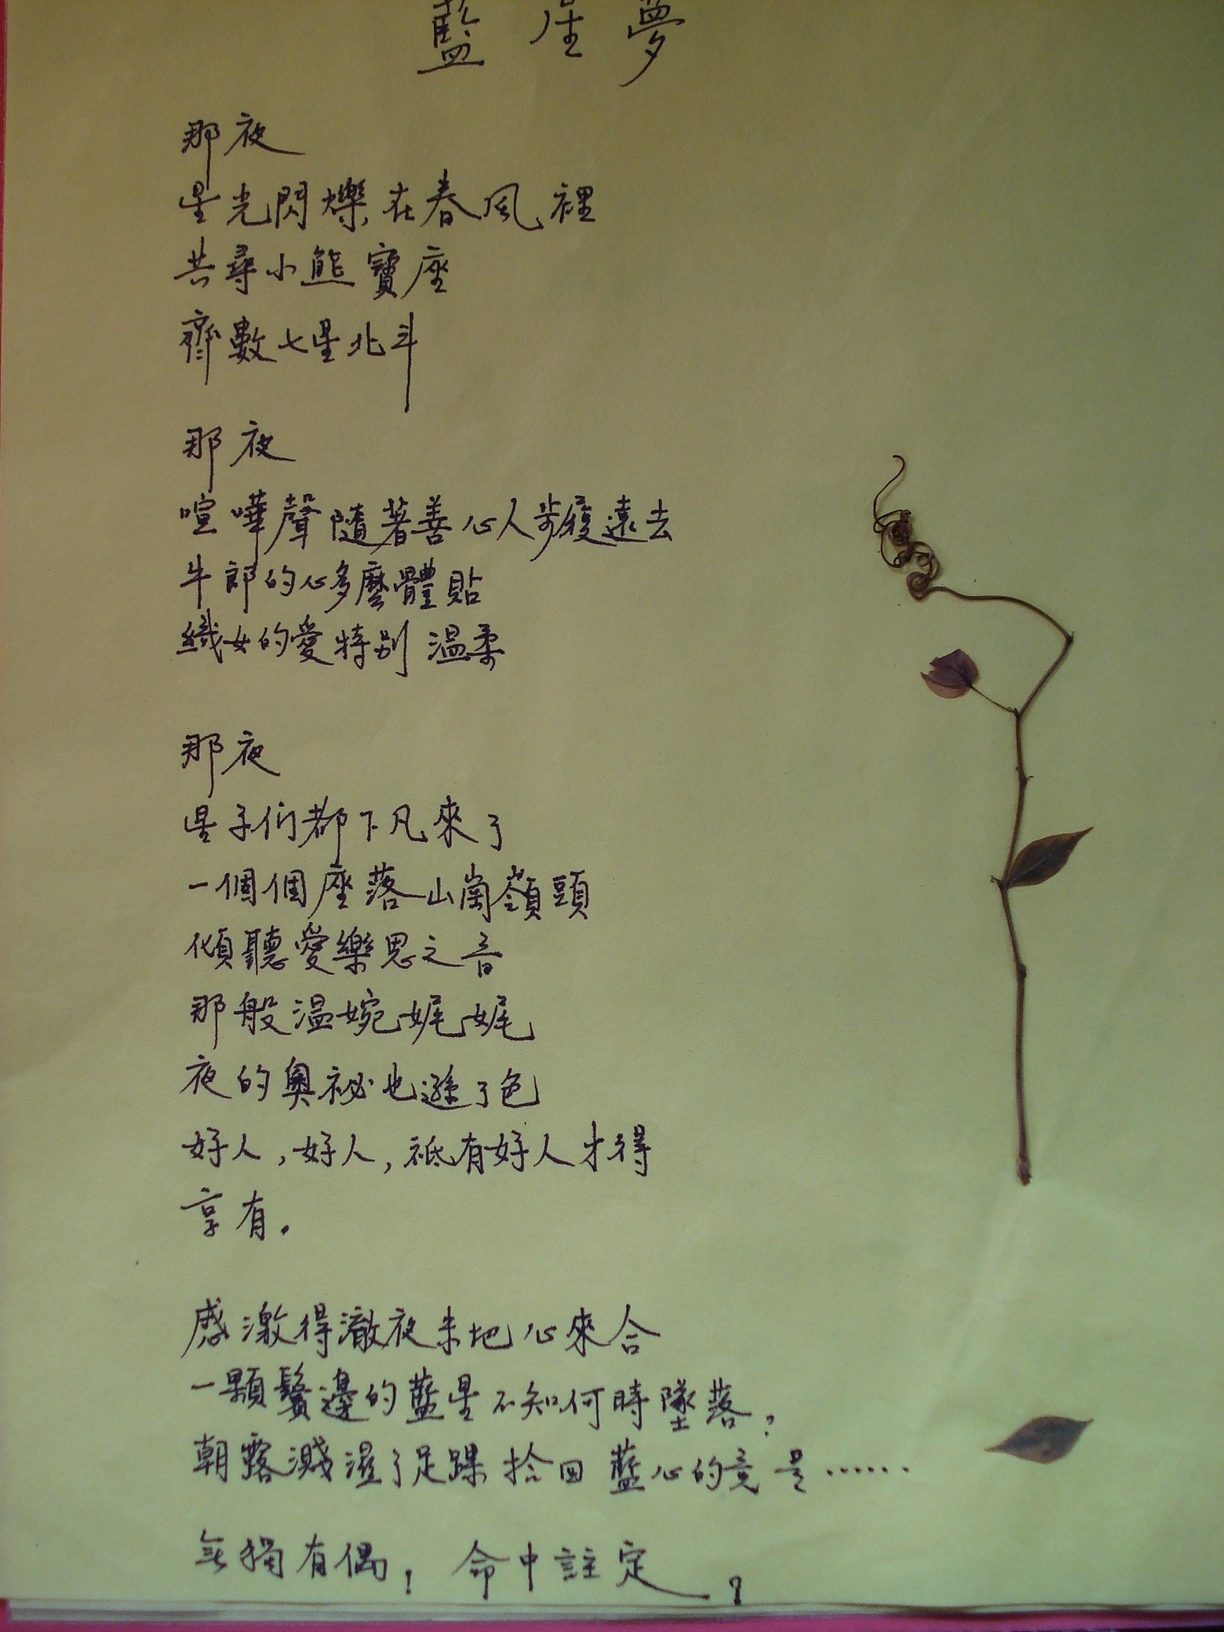 藍星夢
那夜
星光閃爍在春風裡
共尋小熊寶座
齊數七星北斗
那夜
喧嘩聲隨著善心人步履遠去
牛郎的心多麼體貼
織女的愛特別溫柔
那夜
星子們都下凡來了
一個個座落山崗嶺頭
傾聽愛樂恩之音
那般溫婉娓娓
夜的奧祕也遜了色
好人,好人,祗有好人才得
享有。
感激得澈夜未地心來合
一顆鬢邊的藍星不知何時墜落?
朝露濺濕了足踝 拾回藍心的竟是……
無獨有偶! 命中註定?